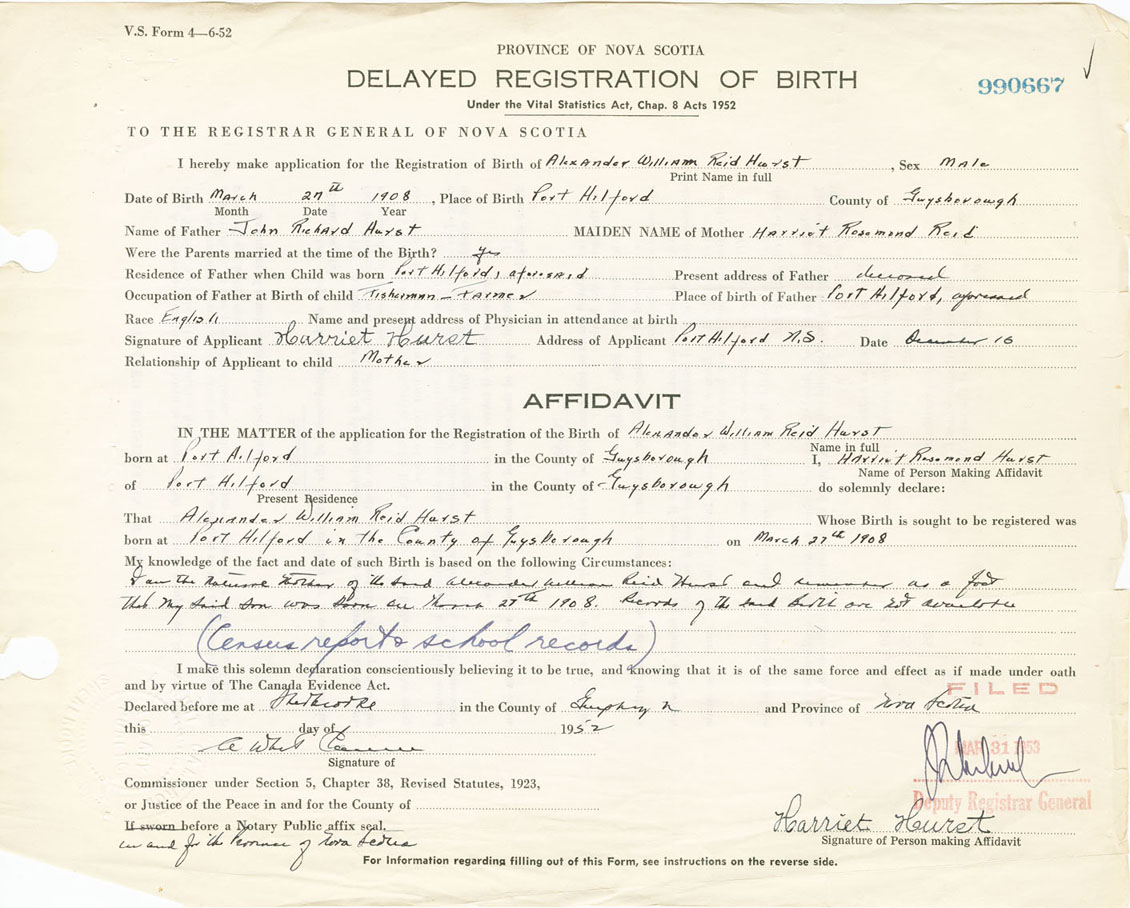 V.S. Form 4—6-52
PROVINCE OF NOVA SCOTIA
DELAYED REGISTRATION OF BIRTH
990667
Under the Vital Statistics Act, Chap. 8 Acts 1952
TO THE REGISTRAR GENERAL OF NOVA SCOTIA
I hereby make application for the Registration of Birth of Alexander William Reid Hurst, Sex Male
Print Name in full
Date of Birth March 27th 1908, Place of Birth Port Hilford County of Guysborough
Month Date Year
Name of Father John Richard Hurst MAIDEN NAME of Mother Harriet Rosemond Reid
Were the Parents married at the time of the Birth? Yes
Residence of Father when Child was born Port Hilford, aforesaid Present address of Father deceased
Occupation of Father at Birth of child Fisherman - Farmer Place of birth of Father Port Hilford, aforesaid
Race English Name and present address of Physician in attendance at birth
Signature of Applicant Harriet Hurst Address of Applicant Port Hilford N.S. Date December 16
Relationship of Applicant to child Mother
AFFIDAVIT
IN THE MATTER of the application for the Registration of the Birth of Alexander William Reid Hurst
Name in full
born at Port Hilford in the County of Guysborough I, Harriet Rosemond Hurst
Name of Person Making Affidavit
of Port Hilford in the County of Guysborough do solemnly declare:
Present Residence
That Alexander William Reid Hurst Whose Birth is sought to be registered was
born at Port Hilford in the County of Guysborough on March 27th 1908
My knowledge of the fact and date of such Birth is based on the following Circumstances:
I am the natural Mother of the said Alexander William Reid Hurst and remember as a fact
that my said son was born on March 27th 1908. Records of the said Birth are not available
(Census report & school records)
I make this solemn declaration conscientiously believing it to be true, and knowing that it is of the same force and effect as if made under oath
and by virtue of The Canada Evidence Act.
FILED
Declared before me at Sherbrooke in the County of and Province of Nova Scotia
this day of 1952
Signature of
MAR 31 1953
Commissioner under Section 5, Chapter 38, Revised Statutes, 1923,
or Justice of the Peace in and for the County of
Deputy Registrar General
If sworn before a Notary Public affix seal.
in and for the Province of Nova Scotia
Harriet Hurst
Signature of Person making Affidavit
For Information regarding filling out of this Form, see instructions on the reverse side.